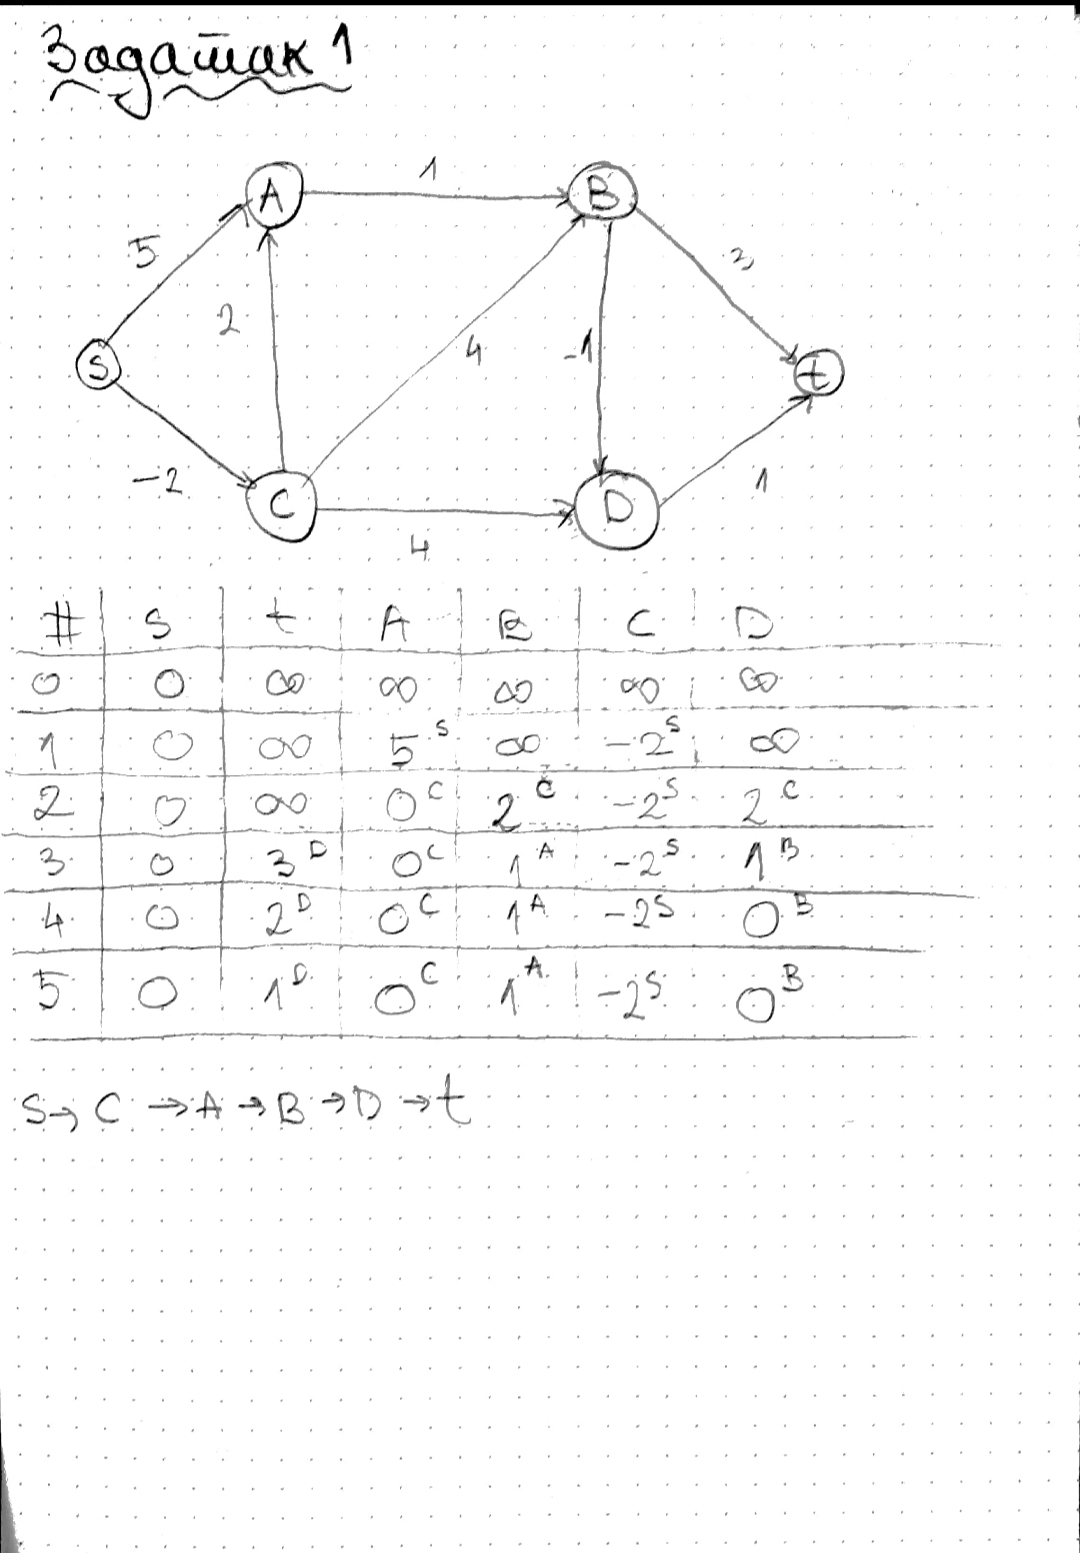 Задатак 1
A 1 B
5 2 4 -1 3
S t
-2 C 4 D 1
# S t A B C D
0 0 ∞ ∞ ∞ ∞ ∞
1 0 ∞ 5^S ∞ -2^S ∞
2 0 ∞ 0^C 2^C -2^S 2^C
3 0 3^D 0^C 1^A -2^S 1^B
4 0 2^D 0^C 1^A -2^S 0^B
5 0 1^D 0^C 1^A -2^S 0^B
S → C → A → B → D → t